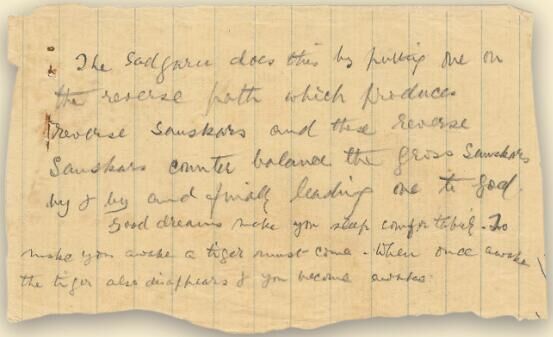 The Sadguru does this by putting one on
the reverse path which produces
reverse Sanskars and these reverse
Sanskars counter balance the gross Sanskars
by & by and finally leading one to God.
Good dreams make you sleep comfortably. To
make you awake a tiger must come. When once awake
the tiger also disappears & you become awake.